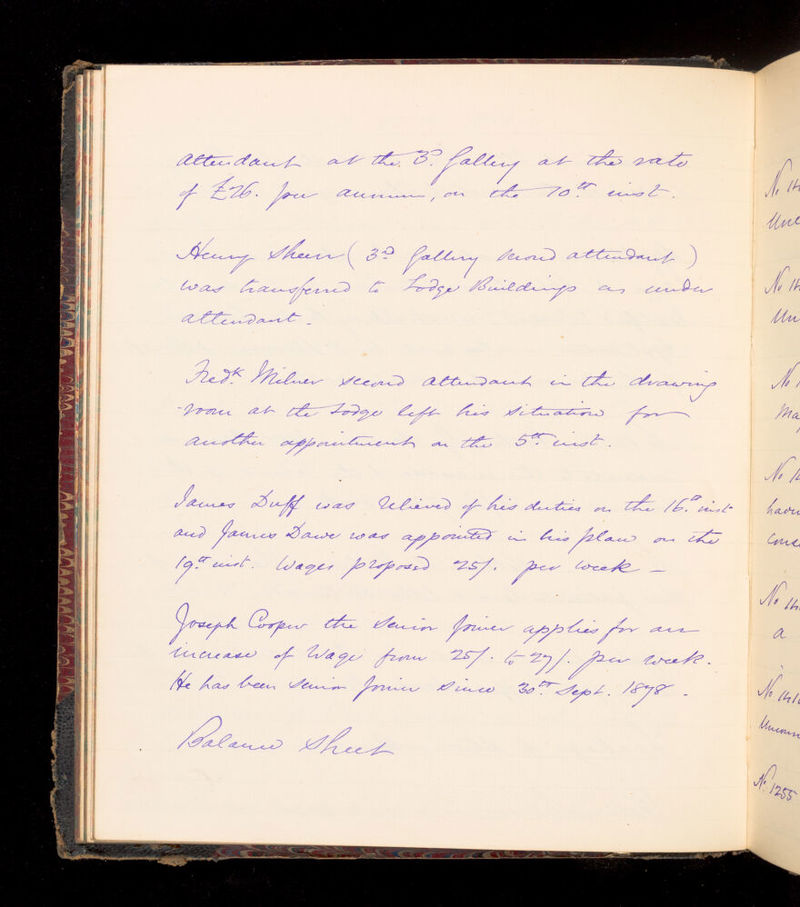 attendant at the 3.d Gallery at the rate
of £26. per annum, on the 10.th inst.
Henry Sheen (3.d Gallery second attendant)
was transferred to Lodge Buildings as under
attendant.
Fred.k Milner second attendant in the drawing
room at the Lodge left his situation for
another appointment on the 5.th inst.
James Duff was relieved of his duties on the 16.th inst
and James Dawe was appointed in his place on the
19.th inst. Wages proposed 25/. per week –
Joseph Cooper the Senior Joiner applies for an
increase of Wage from 25/. to 27/. per week.
He has been Senior Joiner since 30.th Sept. 1898.
Balance Sheet
No
No
No
No
No
No
No. 1255